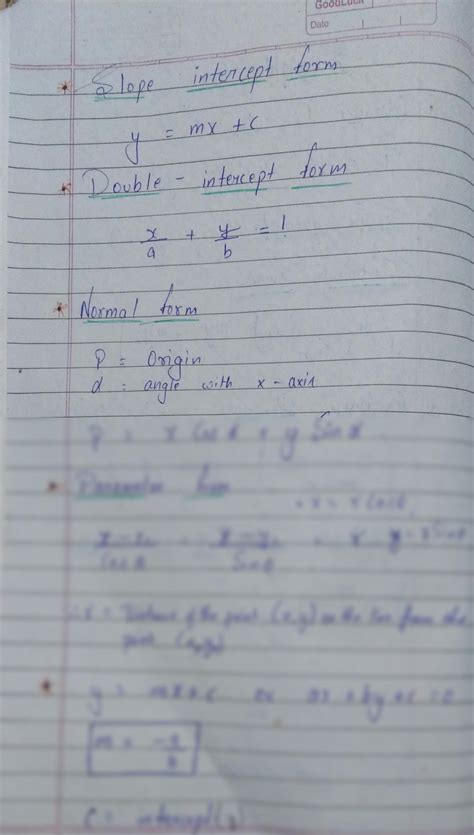 GoodLuck
Date
Slope intercept form
y = mx + c
Double - intercept form
x/a + y/b = 1
Normal form
P = Origin
d = angle with x - axis
P = x Cos d + y Sin x
Parameter form
Cos θ Sin θ
Distance of the point (x,y) on the line from the
point
y = mx + c or ax + by + c = 0
m = -a/b
C = intercept (y)